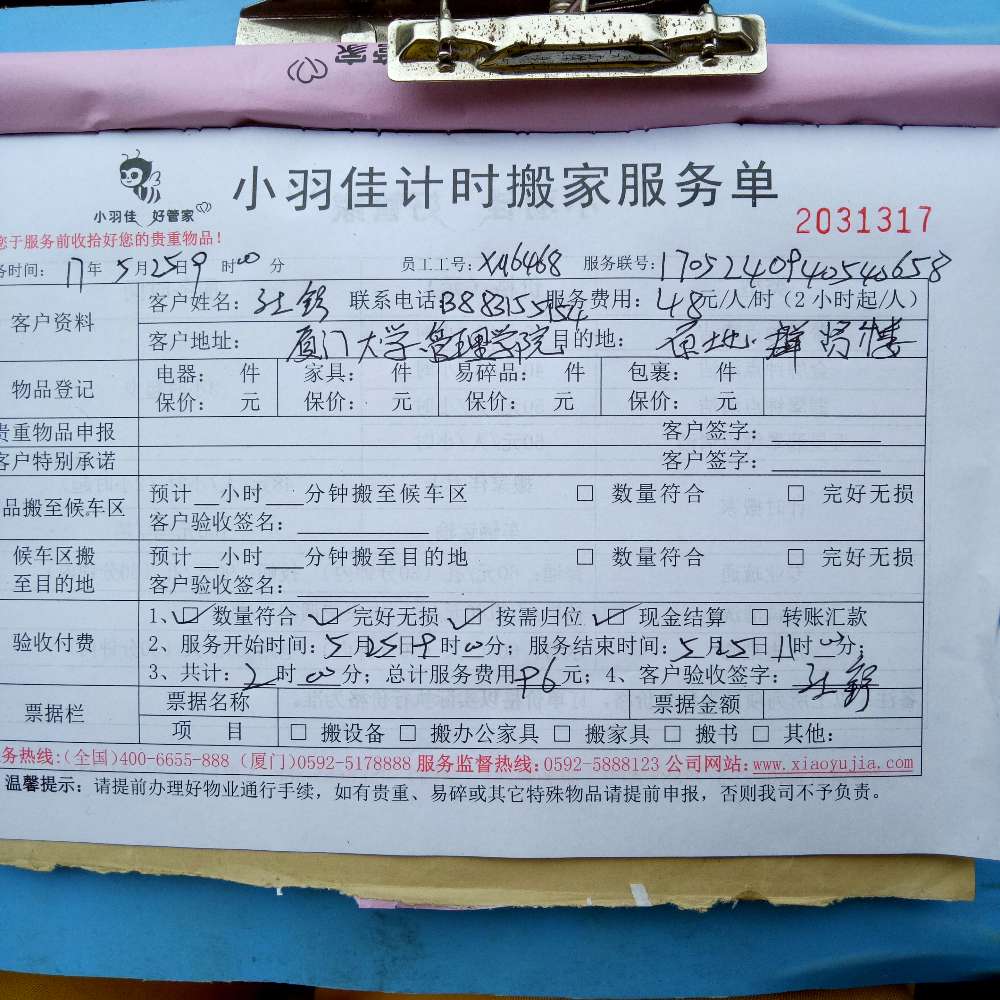 管家
小羽佳计时搬家服务单
小羽佳 好管家
2031317
您于服务前收拾好您的贵重物品！
务时间： 17年5月25日9时00分 员工工号：XM6468 服务联号：1705240940540658
客户资料
客户姓名： 联系电话： 服务费用：48元/人/时（2小时起/人）
客户地址： 厦门大学管理学院 目的地： 原地，群贤楼
物品登记
电器： 件 家具： 件 易碎品： 件 包裹： 件
保价： 元 保价： 元 保价： 元 保价： 元
贵重物品申报 客户签字：
客户特别承诺 客户签字：
品搬至候车区
预计__小时___分钟搬至候车区 □ 数量符合 □ 完好无损
客户验收签名：
候车区搬至目的地
预计__小时___分钟搬至目的地 □ 数量符合 □ 完好无损
客户验收签名：
验收付费
1、☑数量符合 ☑完好无损 ☑按需归位 ☑现金结算 □ 转账汇款
2、服务开始时间：5月25日9时00分；服务结束时间：5月25日11时00分；
3、共计：2时00分；总计服务费用96元；4、客户验收签字：
票据栏
票据名称 票据金额
项 目 □ 搬设备 □ 搬办公家具 □ 搬家具 □ 搬书 □ 其他：
务热线：(全国)400-6655-888 (厦门)0592-5178888 服务监督热线：0592-5888123 公司网站：www.xiaoyujia.com
温馨提示：请提前办理好物业通行手续，如有贵重、易碎或其它特殊物品请提前申报，否则我司不予负责。